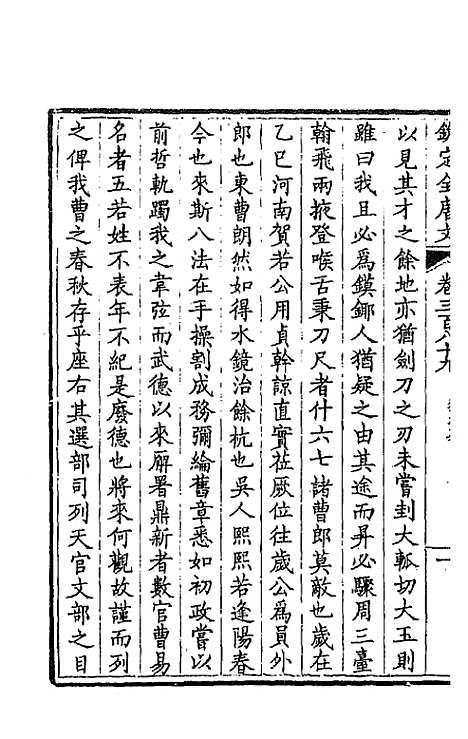 欽定全唐文 卷三百八十九 一
以見其才之餘地亦猶劍刀之刃未嘗刲大瓠切大玉則
雖曰我且必為鏌鎁人猶疑之由其途而昇必驟周三臺
翰飛兩掖登喉舌秉刀尺者什六七諸曹郎莫敵也歲在
乙巳河南賀若公用貞幹諒直實蒞厥位往歲公為員外
郎也東曹朗然如得水鏡治餘杭也吳人熙熙若逢陽春
今也來斯八法在手操割成務彌綸舊章悉如初政嘗以
前哲軌躅我之韋弦而武德以來廨署鼎新者數官曹易
名者五若姓不表年不紀是廢德也將來何觀故謹而列
之俾我曹之春秋存乎座右其選部司列天官文部之目